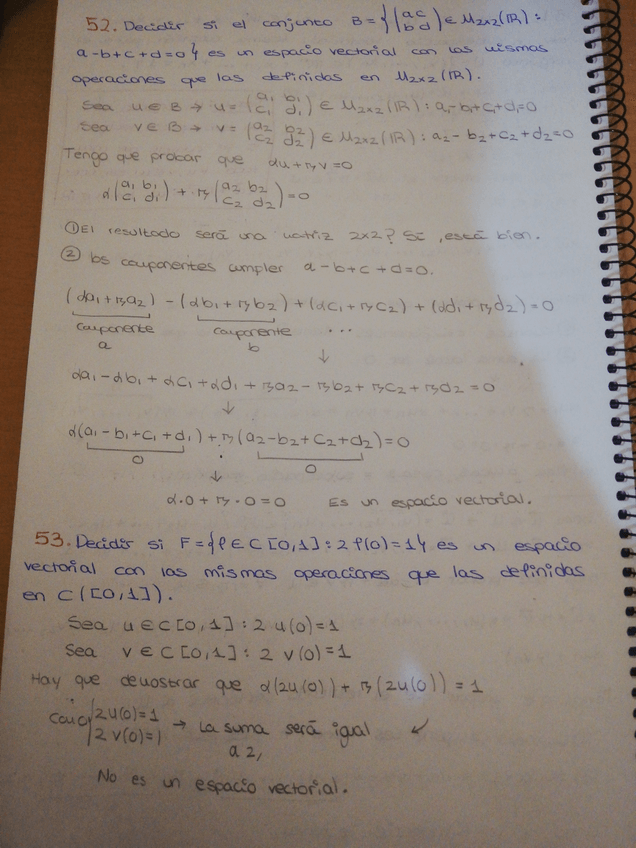 52. Decidir si el conjunto B = {(a c
b d) ∈ M₂ₓ₂(ℝ) :
a - b + c + d = 0} es un espacio vectorial con las mismas
operaciones que las definidas en M₂ₓ₂(ℝ).
Sea u ∈ B → u = (a₁ b₁
c₁ d₁) ∈ M₂ₓ₂(ℝ) : a₁ - b₁ + c₁ + d₁ = 0
Sea v ∈ B → v = (a₂ b₂
c₂ d₂) ∈ M₂ₓ₂(ℝ) : a₂ - b₂ + c₂ + d₂ = 0
Tengo que probar que αu + βv = 0
α(a₁ b₁
c₁ d₁) + β(a₂ b₂
c₂ d₂) = 0
① El resultado será una matriz 2x2? Sí, está bien.
② Los componentes cumplen a - b + c + d = 0.
(αa₁ + βa₂) - (αb₁ + βb₂) + (αc₁ + βc₂) + (αd₁ + βd₂) = 0
componente componente ...
a b
↓
αa₁ - αb₁ + αc₁ + αd₁ + βa₂ - βb₂ + βc₂ + βd₂ = 0
↓
α(a₁ - b₁ + c₁ + d₁) + β(a₂ - b₂ + c₂ + d₂) = 0
0 0
↓
α·0 + β·0 = 0 Es un espacio vectorial.
53. Decidir si F = {f ∈ C[0,1] : 2f(0) = 1} es un espacio
vectorial con las mismas operaciones que las definidas
en C([0,1]).
Sea u ∈ C[0,1] : 2u(0) = 1
Sea v ∈ C[0,1] : 2v(0) = 1
Hay que demostrar que α(2u(0)) + β(2u(0)) = 1
Como { 2u(0) = 1
2v(0) = 1 → La suma será igual ↙
a 2,
No es un espacio vectorial.